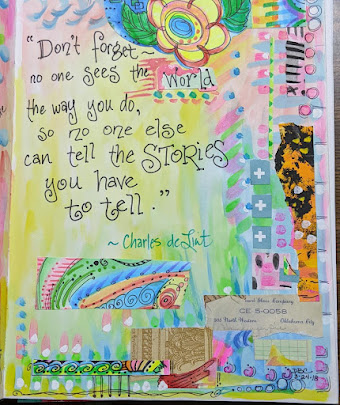 "Don't forget~
no one sees the
world
the way you do,
so no one else
can tell the STORIES
you have
to tell."
~ Charles de Lint
CE 5-0058
Oklahoma City
2-24-18